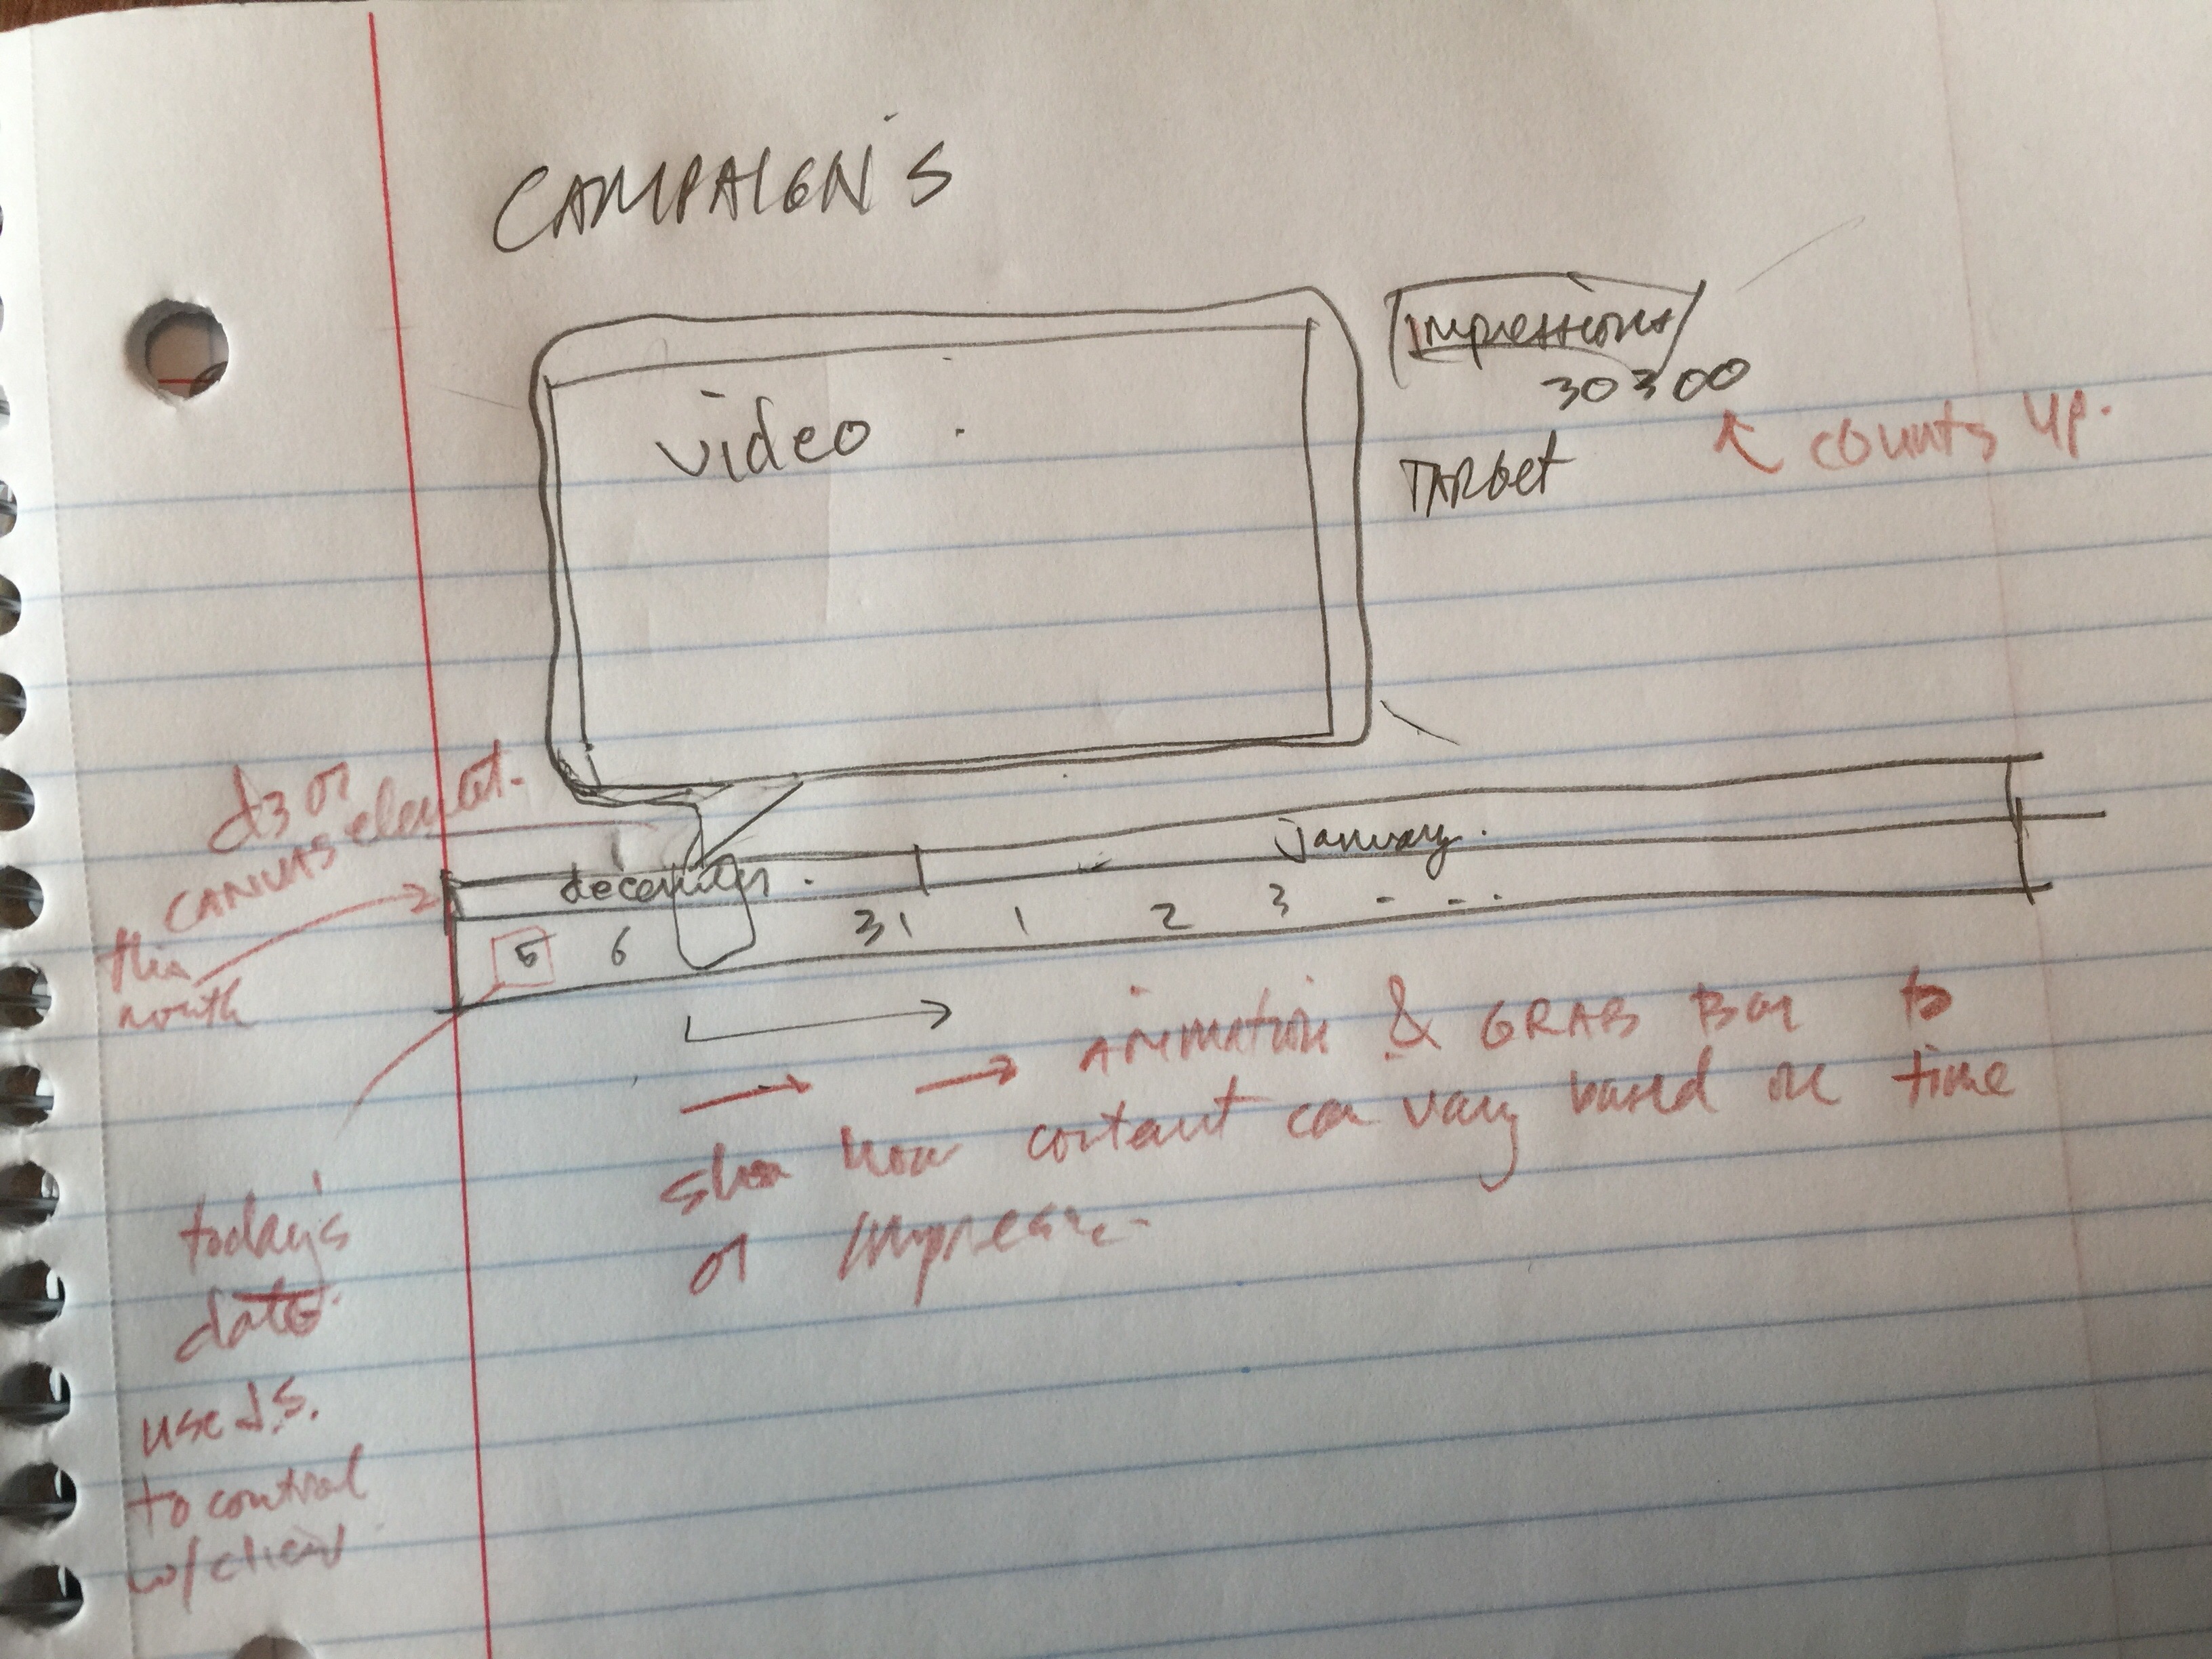 CAMPAIGN'S
Impressions
30300
↖ counts up.
video .
TARGET
d3 or
CANVAS element.
this
month
december .
January.
5 6 31 1 2 3 - - - .
→ → ANIMATION & GRAB Bar to
show how content can vary based on time
or
today's
date.
use J.S.
to control
w/ client